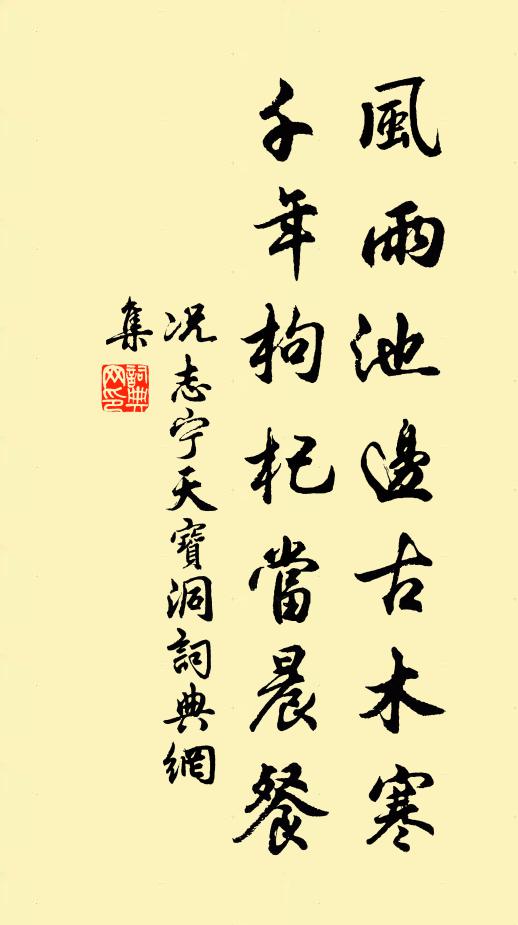 風雨池邊古木寒
千年枸杞當晨餐
況志宁天寶洞詞典網
集
詞典网印